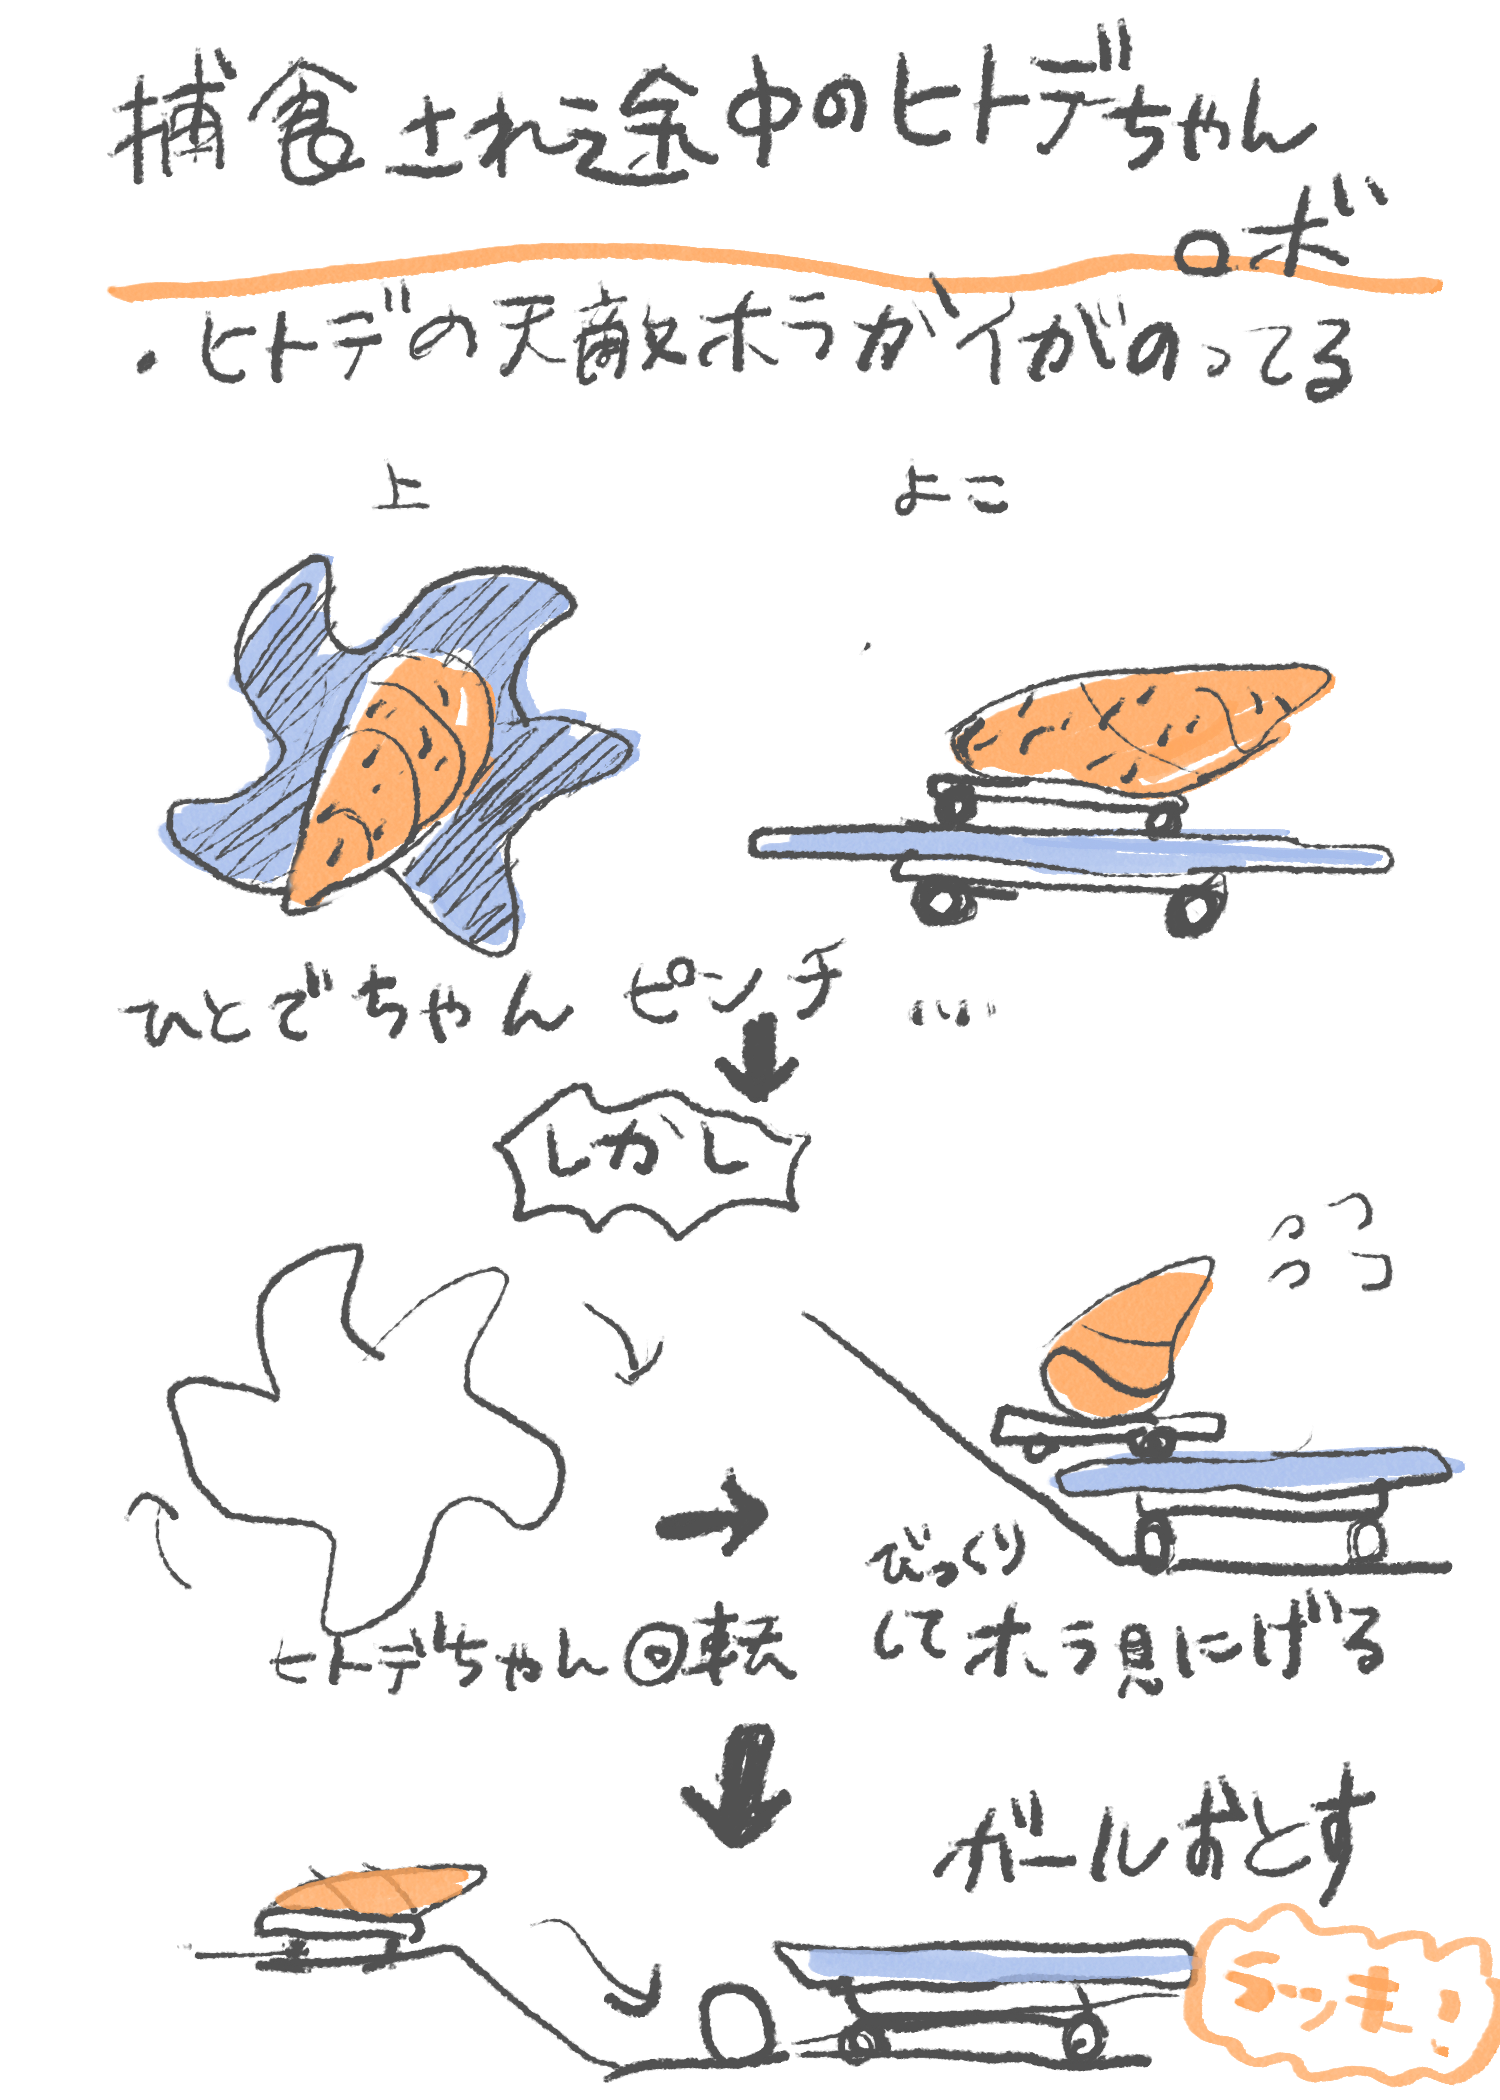 捕食され途中のヒトデちゃん
ロボ
・ヒトデの天敵ホラガイがのってる
上
よこ
ひとでちゃん ピンチ
しかし
ヒトデちゃん回転
びっくり
してホラ貝にげる
ボールおとす
ラッキー!